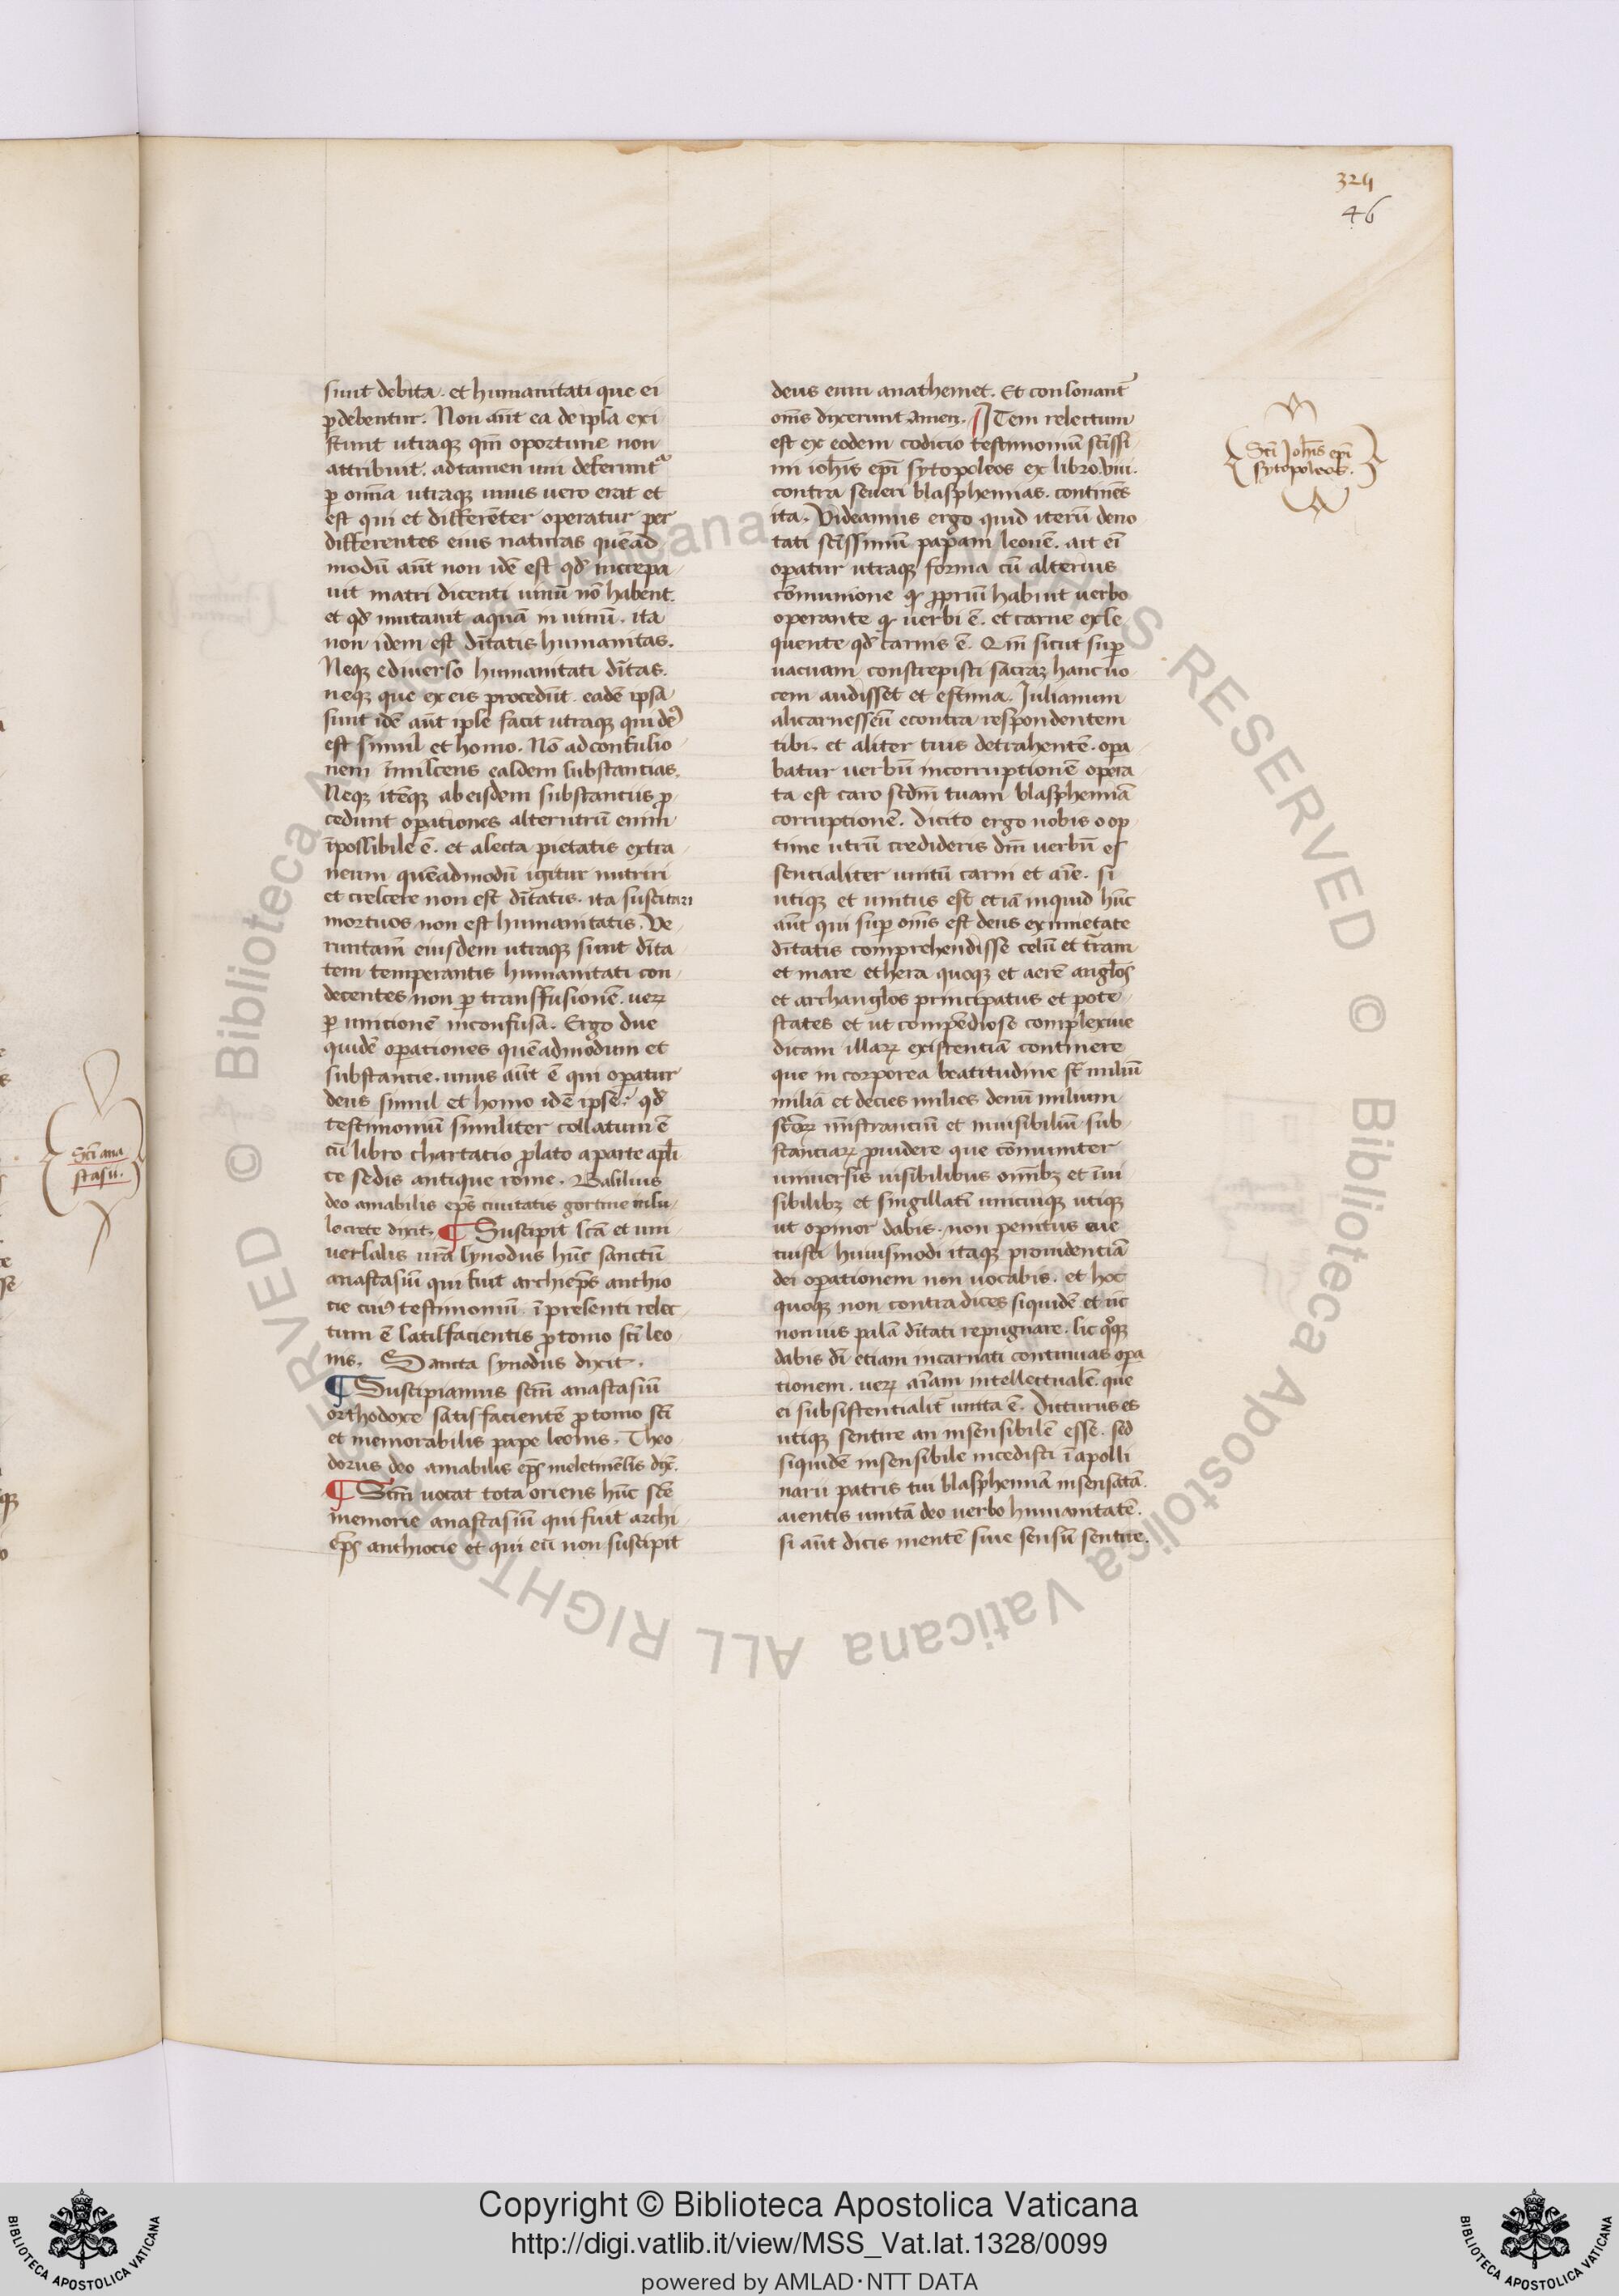 324
46
sunt debita. et humanitati que ei
ꝓdebentur. Non aūt ea de ipsa exi
stunt utraqꝫ qm̄ oportune non
attribuit. ad tamen uni deferunt᷑
ꝑ omīa utraqꝫ unus uero erat et
est qui et differēter operatur per
differentes eius naturas quēad
modū aūt non idē est qd̓ increpa
uit matri dicenti uinū nō habent.
et qd̓ mutauit aquā in uinū. ita
non idem est dītatis humanitas.
Neqꝫ ediuerso humanitati dītas.
neqꝫ que ex eis procedūt. eadē ipsa
sunt idē aūt ipse facit utraqꝫ qui dē
est simul et homo. Nō ad confusio
nem īmiscens easdem substancias.
Neqꝫ itēqꝫ ab eisdem substancius ꝓ
cedunt oꝑationes alterutrū enim
īpossibile ē. et alecta pietatis extra
neum quēadmodū igitur nutriri
et crescere non est dītatis. ita suscitari
mortuos non est humanitatis. Ve
runtam̄ eiusdem utraqꝫ sunt dīta
tem temperantis humanitati con
decentes non ꝑ transfusionē. ueꝝ
ꝑ unicionē inconfusā. Ergo due
quidē oꝑationes quēadmodum et
substancie. unus aūt ē qui oꝑatur
deus simul et homo idē ipse. qd̓
testimoniū similiter collatum ē
cū libro chartacio ꝓlato a parte apl̄i
ce sedis antique rome. Basilius
deo amabilis ep̄s ciuitatis gortine insu
le crete dixit. ¶ Suscipit scā et uni
uersalis n̄ra synodus hūc sanctū
anastasiū qui fuit archiep̄s anthio
cie cui᷒ testimoniū ī presenti relec
tum ē satisfacientis ꝓ tomo scī leo
nis. Sancta synodus dixit.
¶ Suscipiamus scm̄ anastasiū
orthodoxe satisfacientē ꝓ tomo scī
et memorabilis pape leonis. Theo
dorus deo amabilis ep̄s meletinēsis dix̄.
¶ Scm̄ uocat tota oriens hūc scē
memorie anastasiū qui fuit archi
ep̄s anthiocie et qui eū non suscipit
deus eum anathemet. Et consonant᷑
om̄s dixerunt Amen. Item relectum
est ex eodem codicio testimoniū scīssi
mi ioh̄is ep̄i sytopoleos ex libro .viii.
contra seueri blasphemias. continēs
ita. Videamus ergo quid iterū deno
tati scīssimū papam leonē. ait eī
oꝑatur utraqꝫ forma cū alterius
cōmunione qd̓ ꝓpriū habuit uerbo
operante qd̓ uerbi ē. et carne exse
quente qd̓ carnis ē. Qm̄ sicut suꝑ
uacuam constrepisti sacraꝫ hanc uo
cem audisset et estima. Iulianum
alicarnesseū econtra respondentem
tibi. et aliter tuis detrahentē. oꝑa
batur uerbū incorruptionē opera
ta est caro scdm̄ tuam blasphemiā
corruptionē. dicito ergo nobis o op
time utrū credideris dm̄ uerbū es
sencialiter unitū carni et aīe. si
utiqꝫ et unitus est etiā inquid hūc
aūt qui suꝑ om̄s est deus ex imietate
dītatis comprehendisse celū et t̄ram
et mare ethera quoqꝫ et aerē angl̄os
et archangl̄os principatus et pote
states et ut compēdiose complexiue
dicam illaꝝ existentiā continere
que in corporea beatitudine st̄ miliū
miliā et decies milies denū milium
scōꝝ mīstranciū et inuisibiliū sub
stanciaꝝ ꝓuidere que cōmuniter
uniuersis uisibilibus omībꝫ et īui
sibilibꝫ et singillatī unicuiqꝫ utiqꝫ
ut opinor dabis. non penitus eue
tuisti huiusmodi itaqꝫ prouidentiā
dei oꝑationem non uocabis. et hoc
quoqꝫ non contradices siquidē et tic
non uis palā dītati repugnare. sic qͦqꝫ
dabis dī etiam incarnati continuas oꝑa
tionem. ueꝝ aīam intellectualē. que
ei subsistentialit̄ unita ē. Dicturus es
utiqꝫ sentire an insensibilē esse. sed
siquidē insensibile incedisti ī apolli
narii patris tui blasphemiā insensatā.
aientis unitā deo uerbo humanitatē.
si aūt dicis mentē siue sensū sentire.
Scī Joh̄is ep̄i
sytopoleos.
Scī ana
stasii.
Copyright © Biblioteca Apostolica Vaticana
http://digi.vatlib.it/view/MSS_Vat.lat.1328/0099
powered by AMLAD·NTT DATA
BIBLIOTECA APOSTOLICA VATICANA
BIBLIOTECA APOSTOLICA VATICANA
© Biblioteca Apostolica Vaticana ALL RIGHTS RESERVED
© Biblioteca Apostolica Vaticana ALL RIGHTS RESERVED